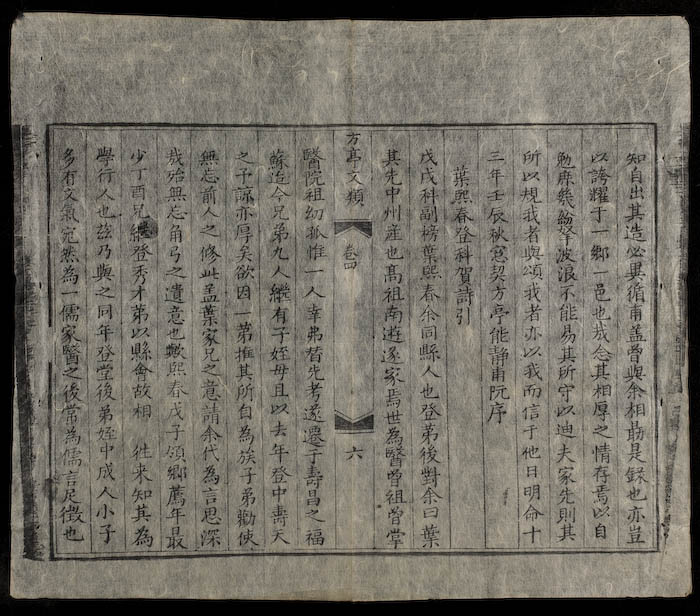 知自出其造必異循甫蓋曾與余相勗是録也亦豈
以誇耀于一鄉一邑也哉念其相厚之情存焉以自
勉庶幾紛挐波浪不能易其所守以迪夫家先則其
所以規我者與頌我者亦以我而信于他日明命十
三年壬辰秋寔契方亭能静甫阮序
葉熙春登科賀詩引
戊戌科副榜葉熙春余同縣人也登第後對余曰葉
其先中州産也髙祖南遊遂家焉世為醫曽祖曽掌
方亭文類
卷四
六
醫院祖幼孤惟一人幸弗替先考遂遷于壽昌之福
蘇迨今兄弟九人繼有子姪母且以去年登中壽天
之予諒亦厚矣欲因一第推其所自為族子弟勸使
無忘前人之修此盖葉家兄之意請余代為言思深
哉殆無忘角弓之遺意也歟熙春戊子領鄉薦年最
少丁酉兄繼登秀才弟以縣會故相 徃来知其為
學行人也兹乃與之同年登堂後弟姪中成人小子
多有文氣宛然為一儒家醫之後常為儒言足徴也